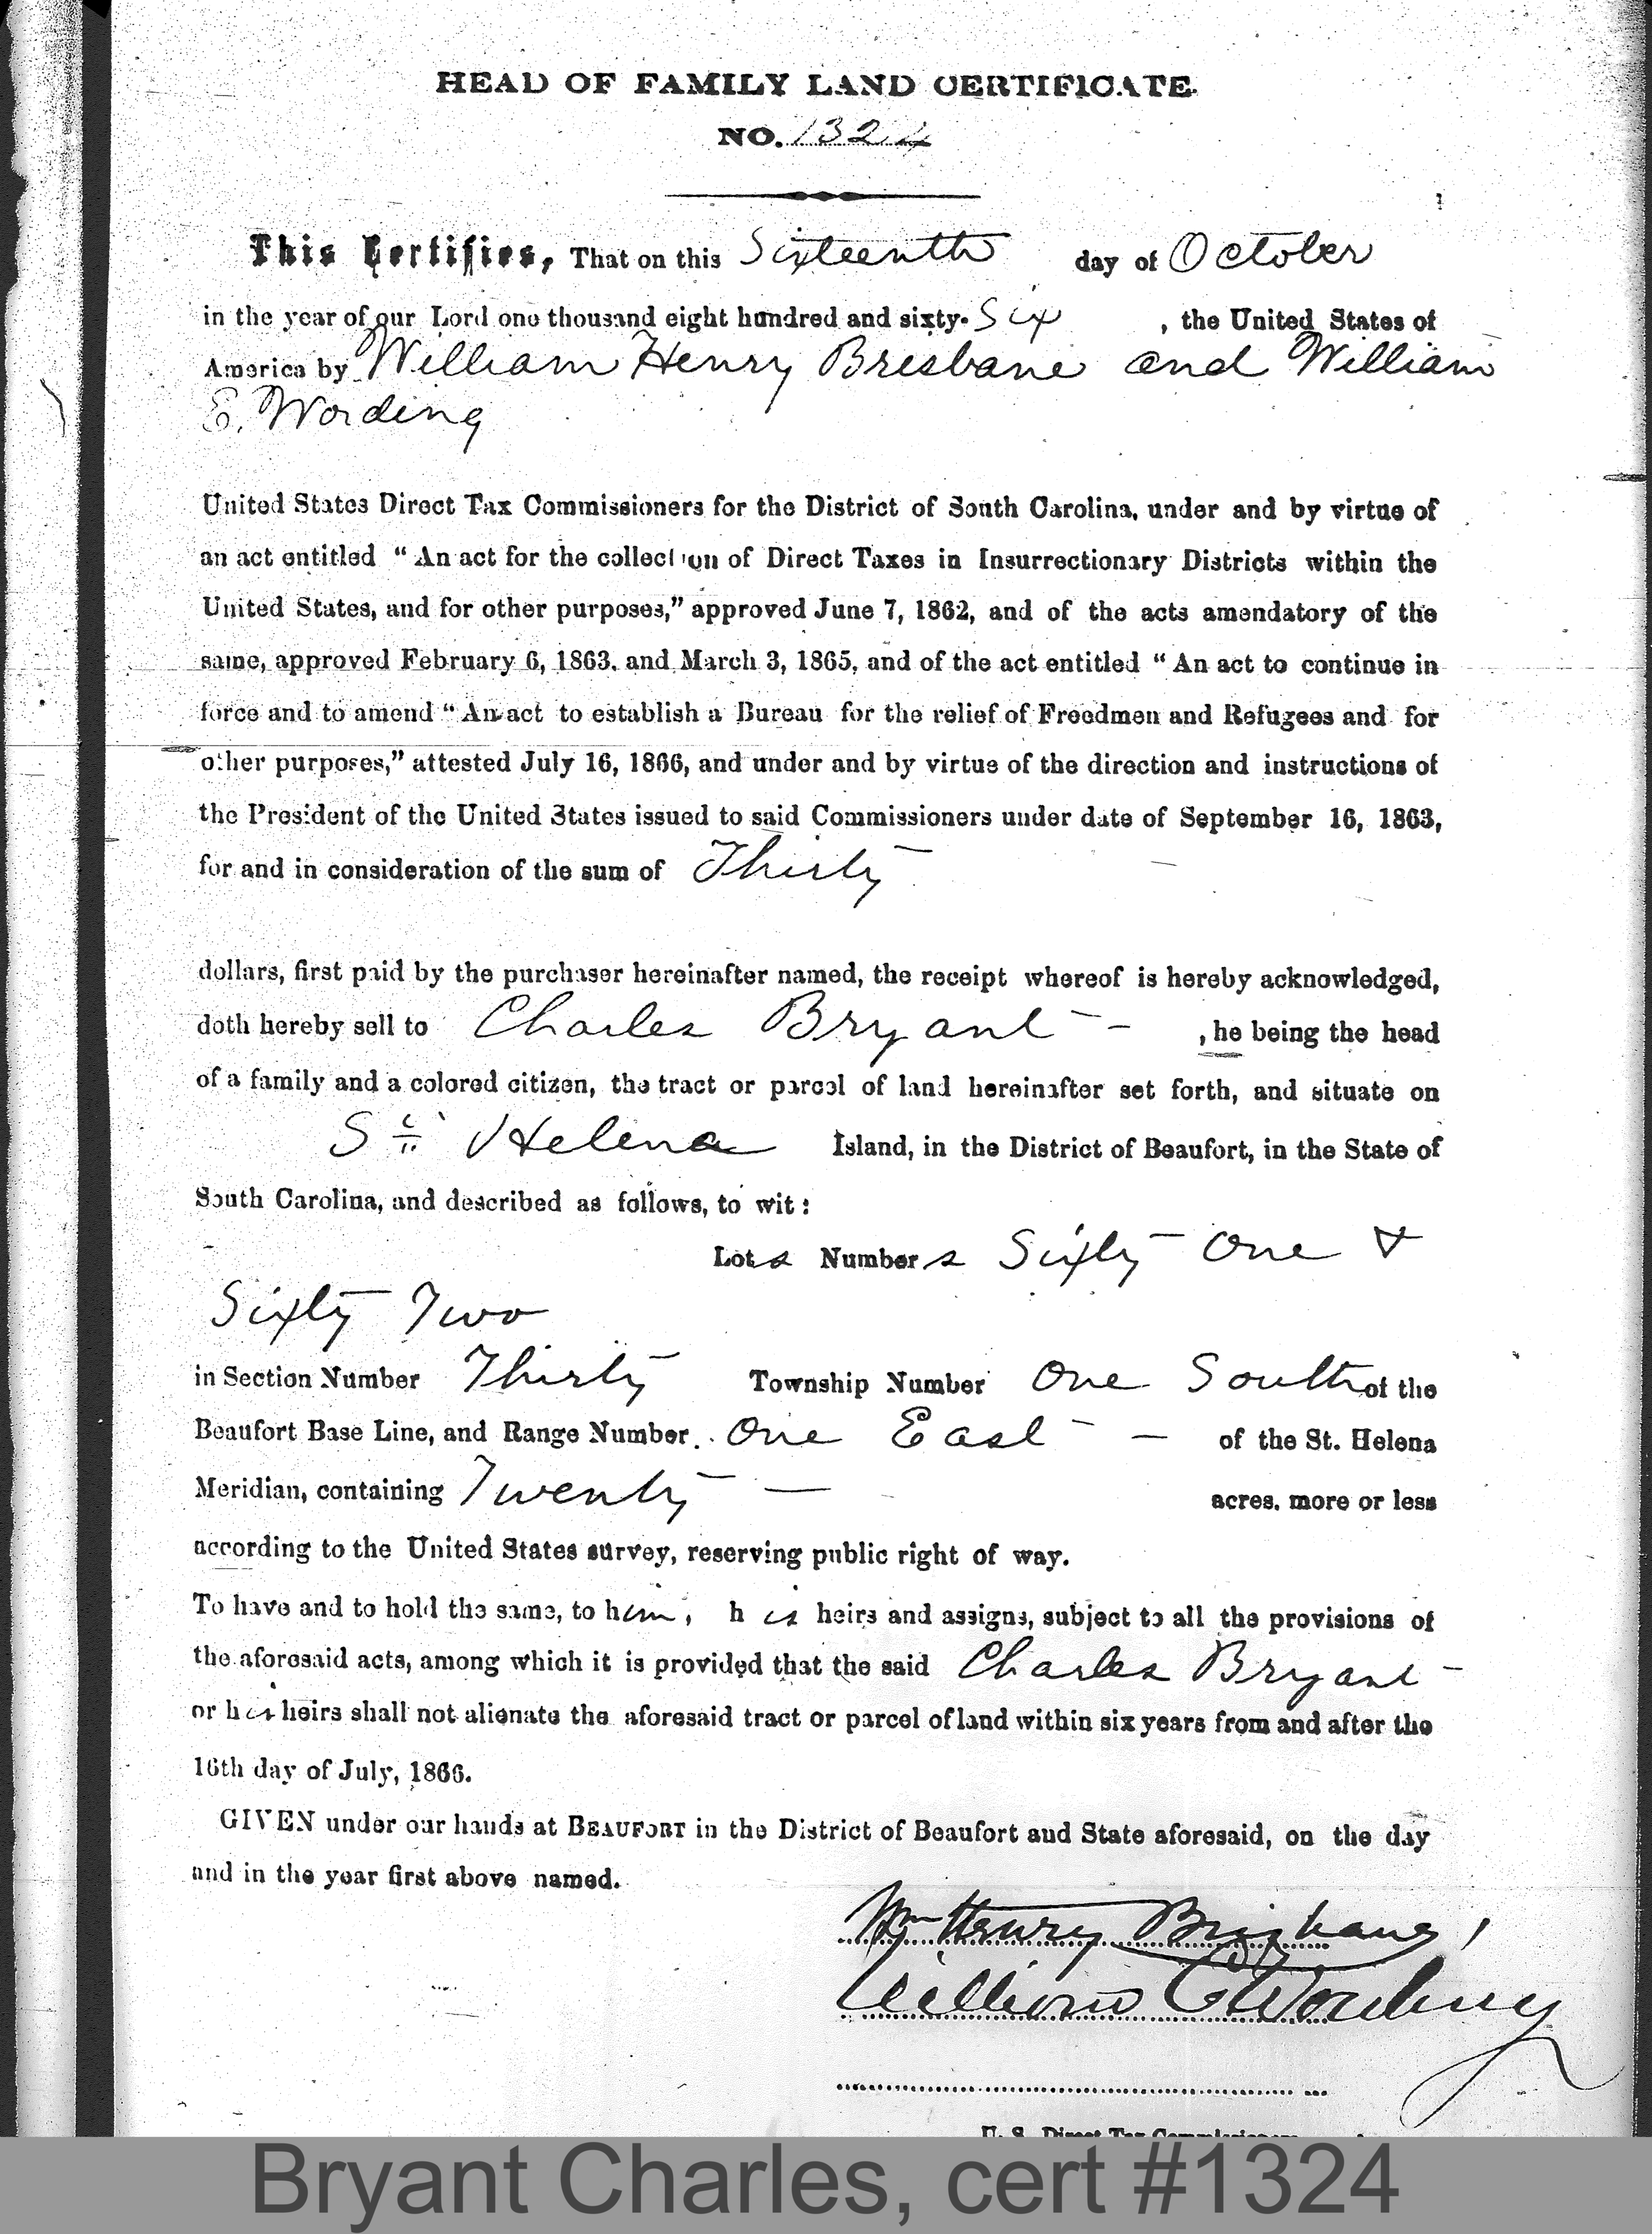 HEAD OF FAMILY LAND CERTIFICATE
NO. 1324
This Certifies, That on this Sixteenth day of October
in the year of our Lord one thousand eight hundred and sixty-Six, the United States of
America by William Henry Brisbane and William
E. Wording
United States Direct Tax Commissioners for the District of South Carolina, under and by virtue of
an act entitled "An act for the collection of Direct Taxes in Insurrectionary Districts within the
United States, and for other purposes," approved June 7, 1862, and of the acts amendatory of the
same, approved February 6, 1863, and March 3, 1865, and of the act entitled "An act to continue in
force and to amend "An act to establish a Bureau for the relief of Freedmen and Refugees and for
other purposes," attested July 16, 1866, and under and by virtue of the direction and instructions of
the President of the United States issued to said Commissioners under date of September 16, 1863,
for and in consideration of the sum of Thirty
dollars, first paid by the purchaser hereinafter named, the receipt whereof is hereby acknowledged,
doth hereby sell to Charles Bryant - - , he being the head
of a family and a colored citizen, the tract or parcel of land hereinafter set forth, and situate on
St. Helena Island, in the District of Beaufort, in the State of
South Carolina, and described as follows, to wit:
Lots Numbers Sixty One &
Sixty Two
in Section Number Thirty Township Number One South of the
Beaufort Base Line, and Range Number One East - of the St. Helena
Meridian, containing Twenty — acres, more or less
according to the United States survey, reserving public right of way.
To have and to hold the same, to him, his heirs and assigns, subject to all the provisions of
the aforesaid acts, among which it is provided that the said Charles Bryant -
or his heirs shall not alienate the aforesaid tract or parcel of land within six years from and after the
16th day of July, 1866.
GIVEN under our hands at BEAUFORT in the District of Beaufort and State aforesaid, on the day
and in the year first above named.
Wm Henry Brisbane,
William E Wording
U. S. Direct Tax Commissioners
Bryant Charles, cert #1324